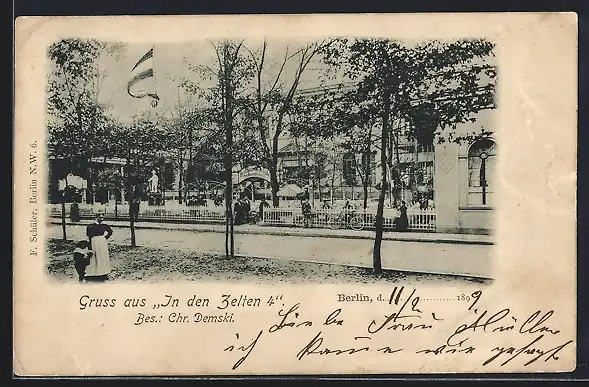 F. Schüler, Berlin N.W. 6.
Gruss aus „In den Zelten 4“.
Bes.: Chr. Demski.
Berlin, d. 11/9 1899
Liebe Frau Müller
ich komme wie gesagt